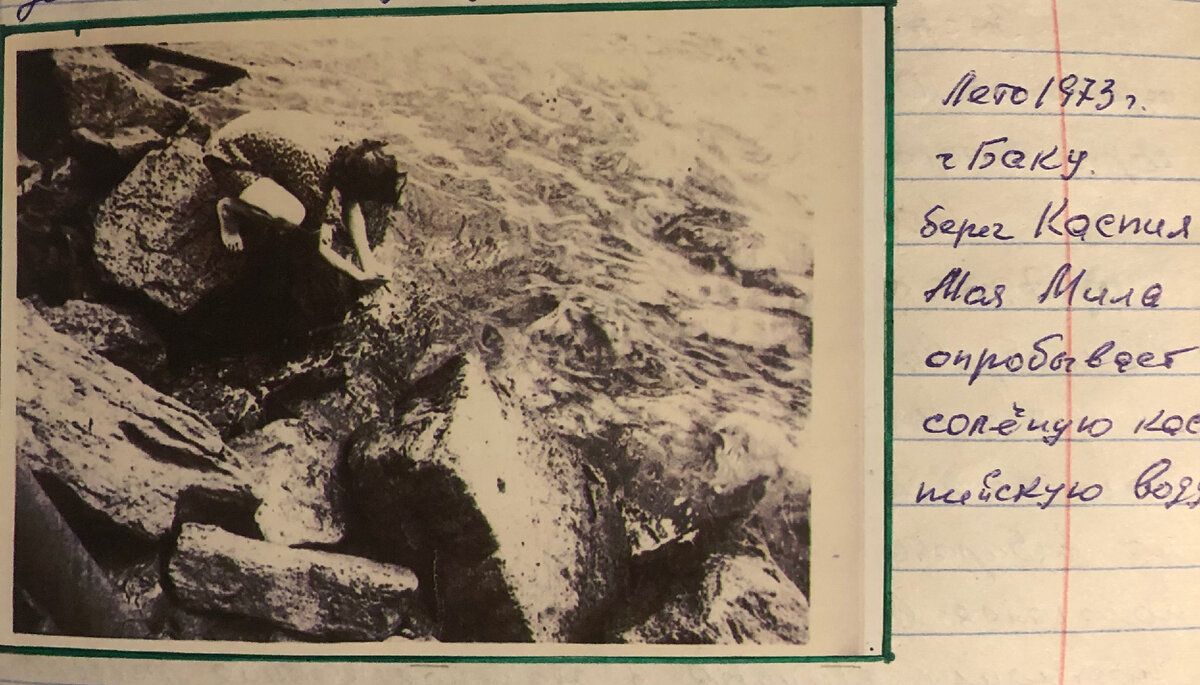 Лето 1973 г.
г Баку.
берег Каспия
Моя Мила
опробывает
солёную кас
пейскую воду